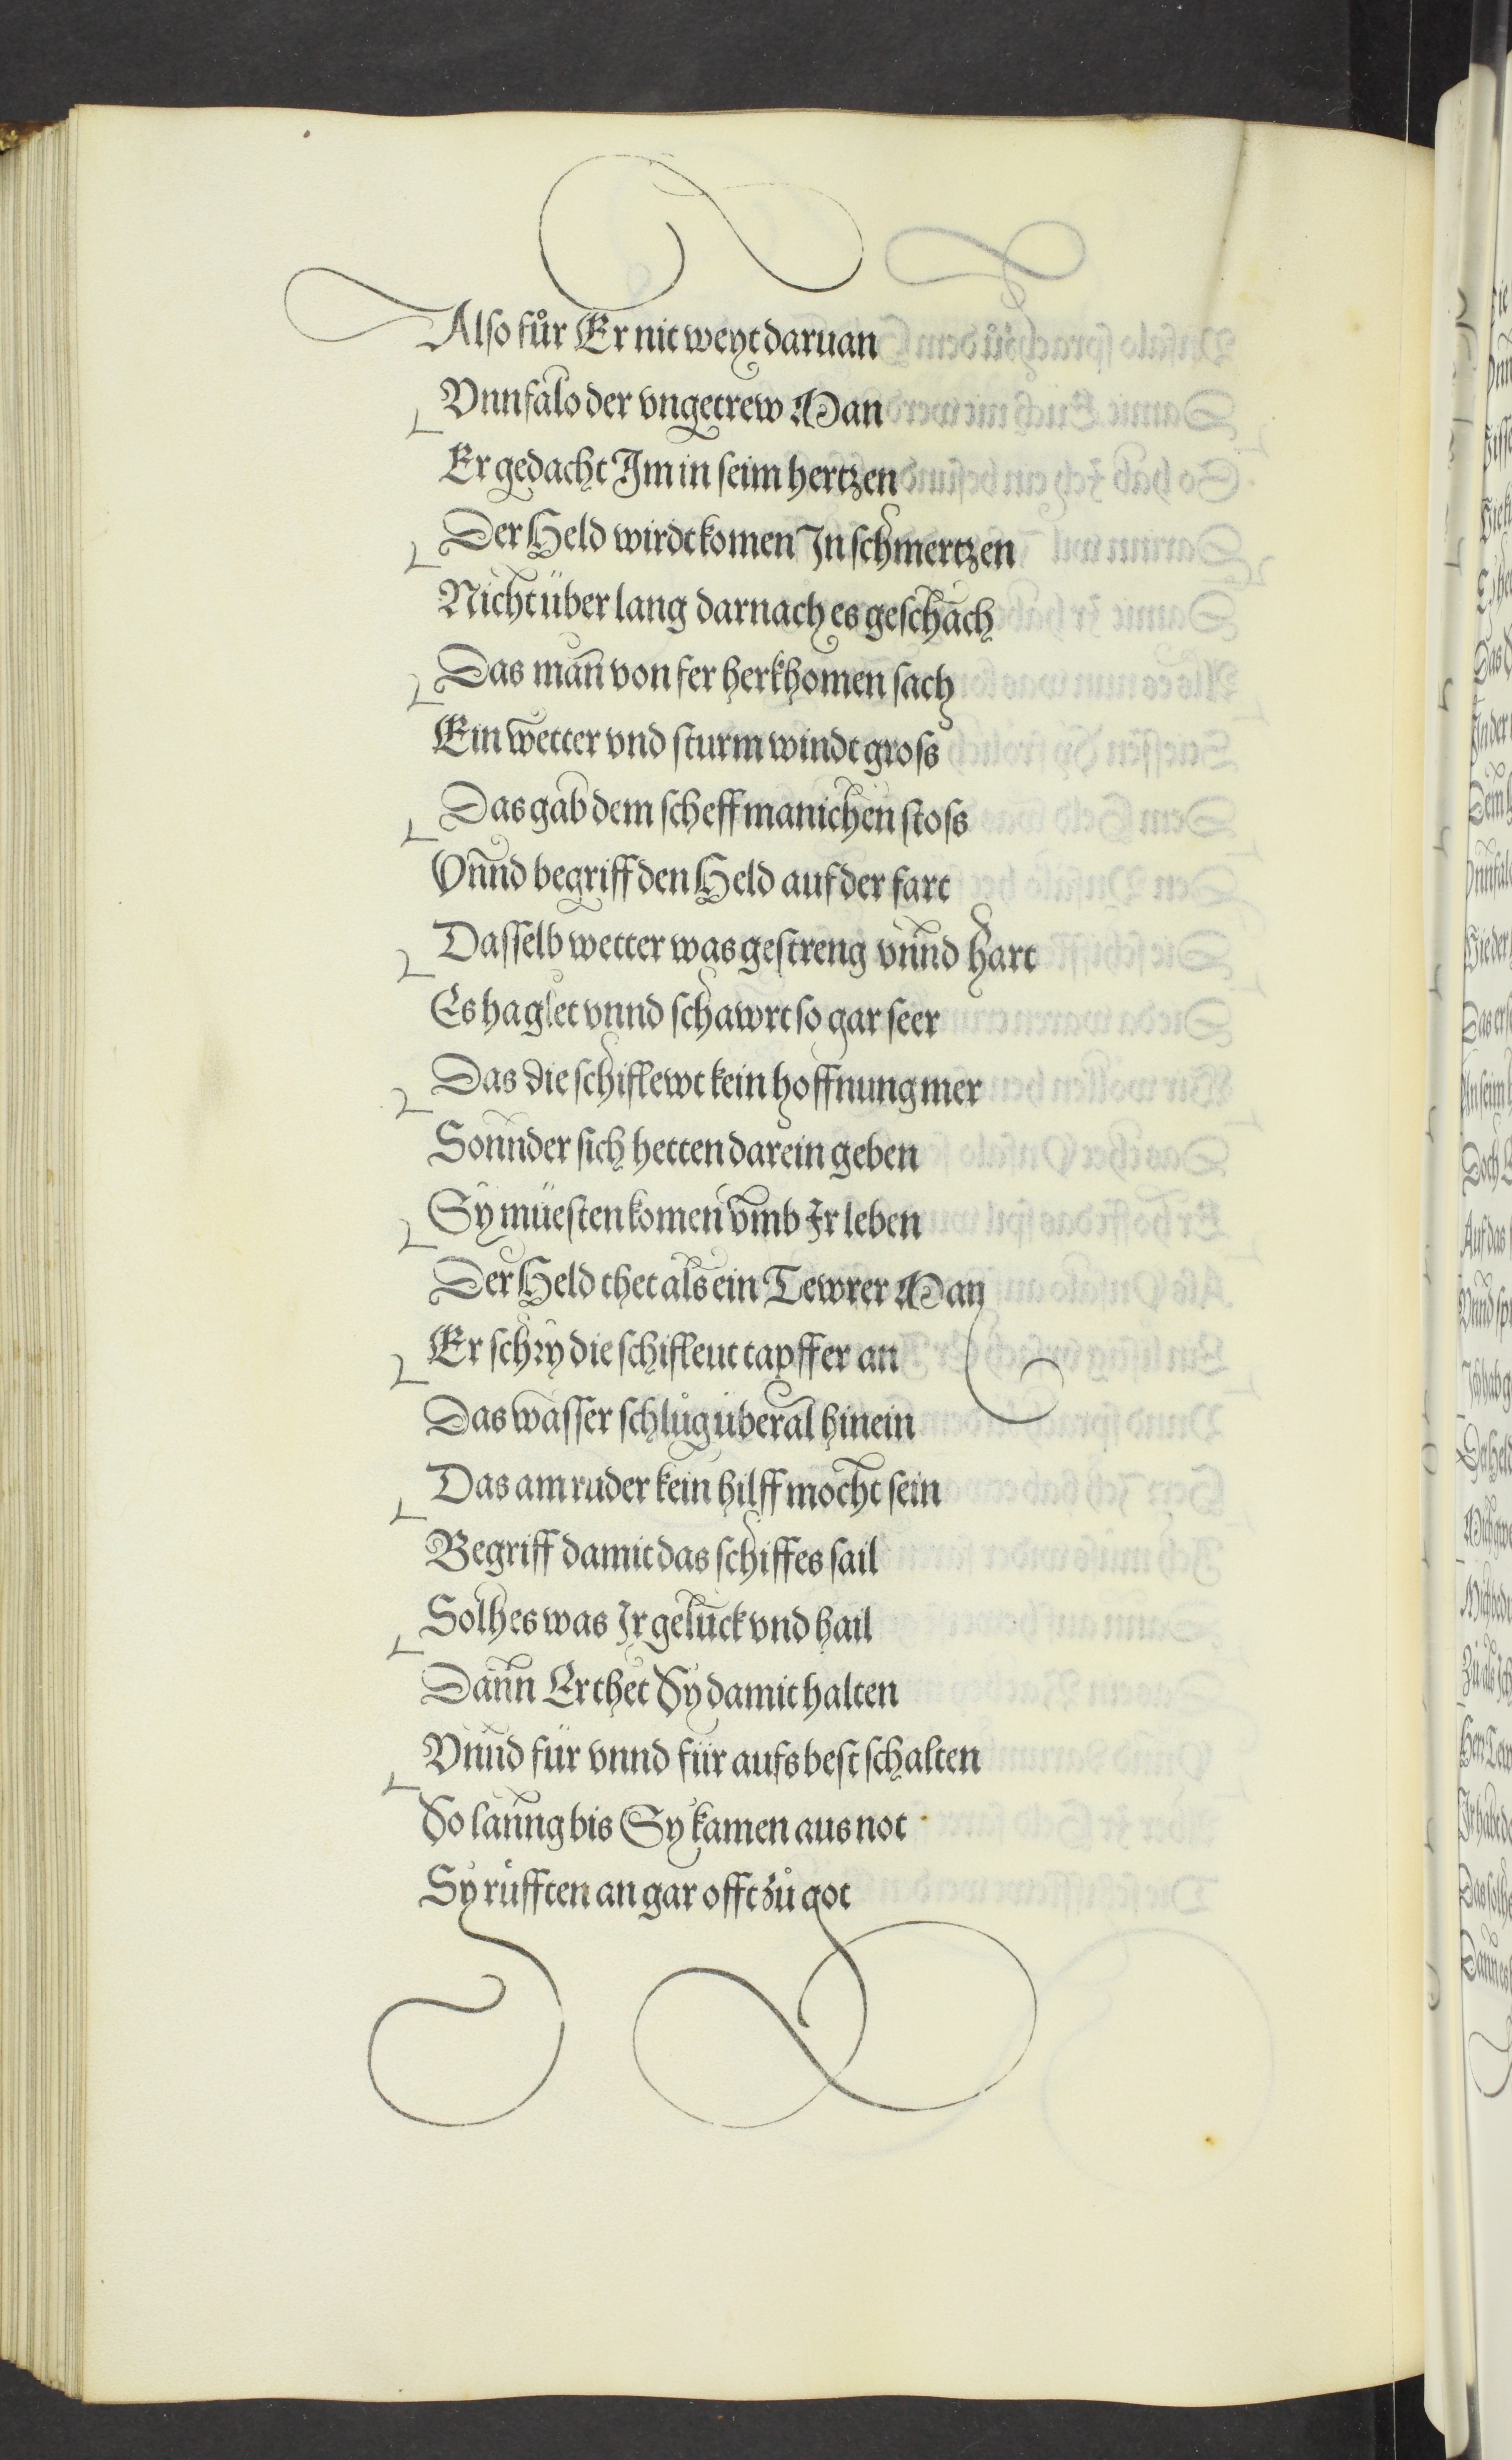 Also fůr Er nit weyt daruan
Vnnfalo der vngetrew Man
Er gedacht Im in seim hertzen
Der Held wirdt komen In schmertzen
Nicht über lang darnach es geschach
Das man von fer herkhomen sach
Ein wetter vnd sturm windt gross
Das gab dem scheff manichen stoss
Vnnd begriff den Held auf der fart
Dasselb wetter was gestreng vnnd hart
Es haglet vnnd schawrt so gar seer
Das die schiflewt kein hoffnung mer
Sonnder sich hetten darein geben
Sy müesten komen vmb Ir leben
Der Held thet als ein Tewrer Man
Er schry die schifleut tapffer an
Das wasser schlůg überal hinein
Das am ruder kein hilff mocht sein
Begriff damit das schiffes sail
Solhes was Ir gelück vnd hail
Dann Er thet Sy damit halten
Vnnd für vnnd für aufs best schalten
So lanng bis Sy kamen aus not
Sy rüfften an gar offt zů got